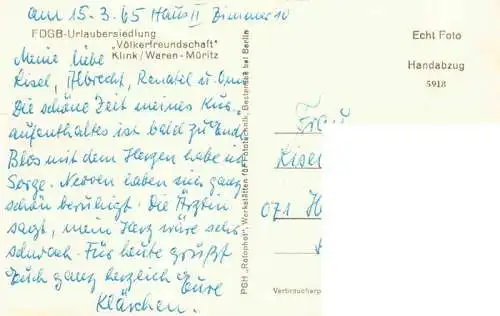 am 15.3.65 Haus II Zimmer 10
FDGB-Urlaubersiedlung
„Völkerfreundschaft"
Klink/Waren-Müritz
Meine liebe
Lisel, Albrecht, Renatel u. Oma
Die schöne Zeit meines Kur-
aufenthaltes ist bald zu Ende
Blos mit dem Herzen habe ich
Sorge. Nerven haben sich ganz
schön beruhigt. Die Ärztin
sagt, mein Herz wäre sehr
schwach. Für heute grüßt
Euch ganz herzlich Eure
Klärchen.
PGH „Rotophot", Werkstätten für Fototechnik, Bestensee bei Berlin
Echt Foto
Handabzug
5918
Frau
Lisel
071 H
Verbraucherp